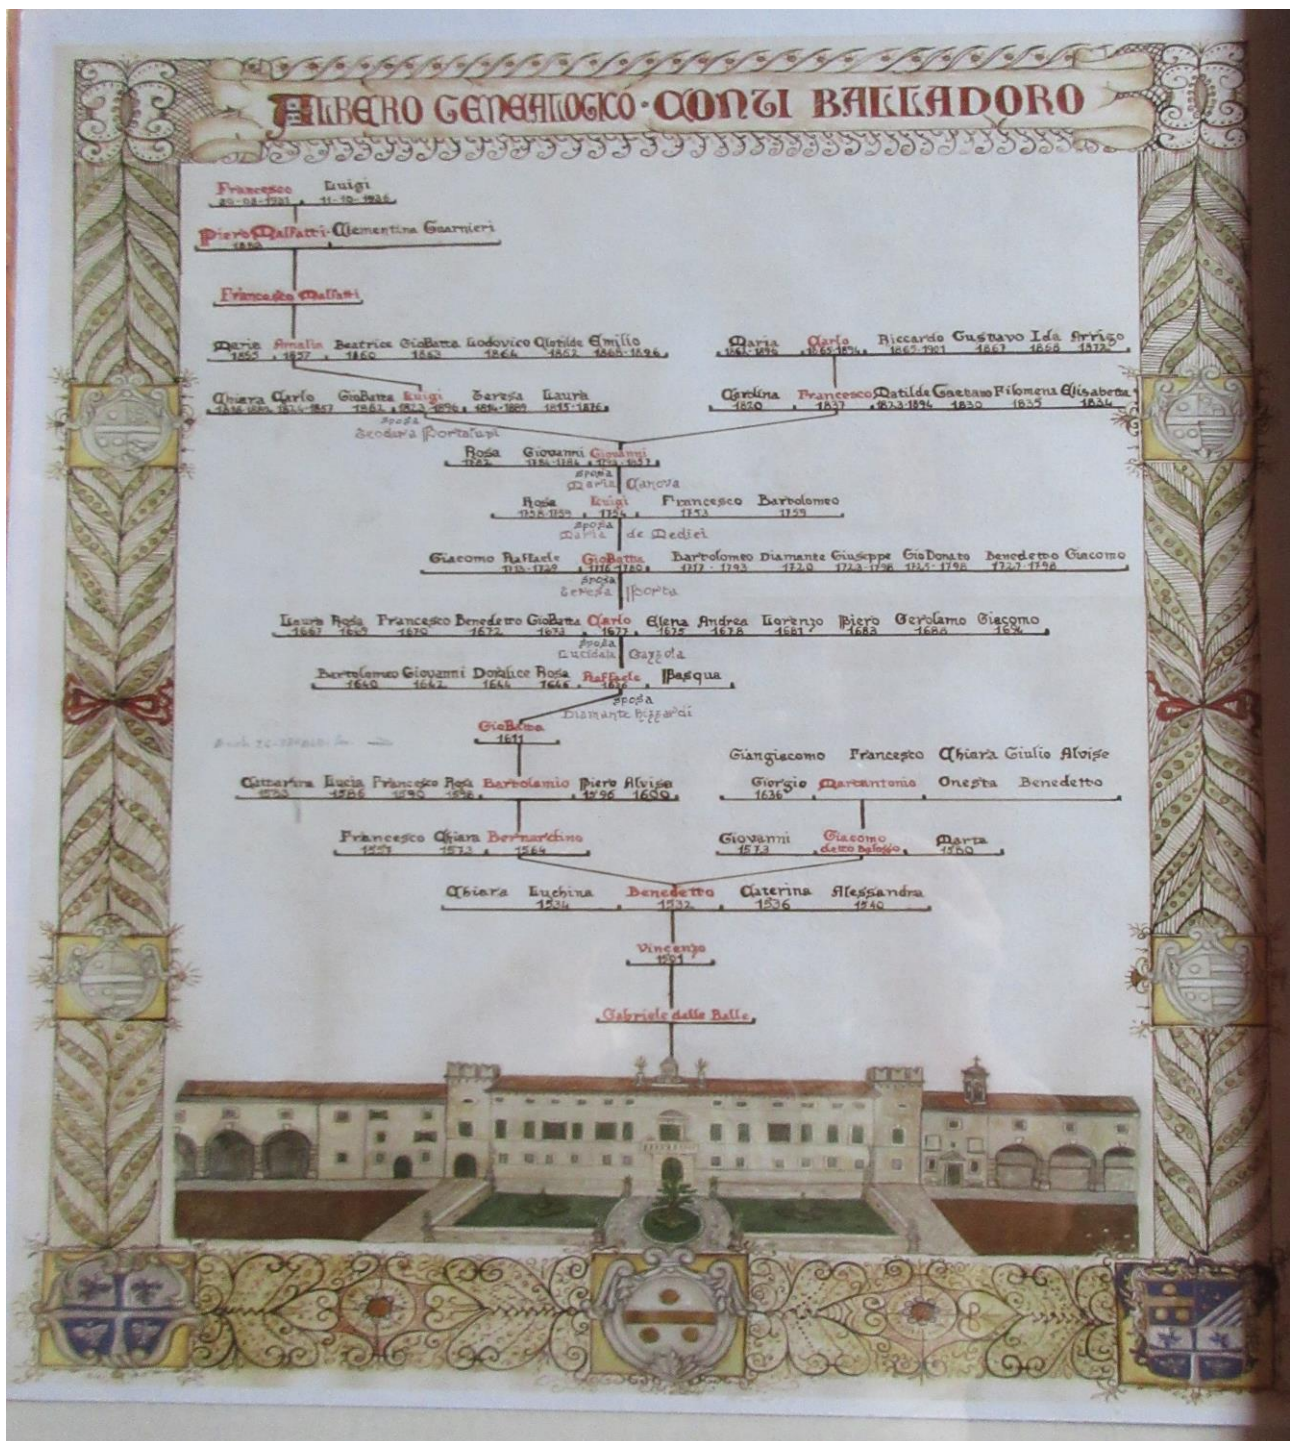 ALBERO GENEALOGICO · CONTI BALLADORO
Francesco Luigi
11-10-1936
Piero Malfatti - Clementina Guarnieri
Francesco Malfatti
Maria Amalia Beatrice GioBatta Lodovico Clotilde Emilio
1855 1857 1860 1863 1864 1862 1868-1896
Maria Carlo Riccardo Gustavo Ida Arrigo
1865-1901 1867 1868 1872
Chiara Carlo GioBatta Luigi Teresa Laura
1824-1857 1822-1896 1814-1889 1815-1876
Carolina Francesco Matilde Gaetano Filomena Elisabetta
1820 1837 1823-1894 1830 1835 1834
sposa
Teodora Portalupi
Rosa Giovanni Giovanni
1782 1784-1784
sposa
Maria Canova
Rosa Luigi Francesco Bartolomeo
1758-1759 1754 1753 1759
sposa
Maria de Medici
Giacomo Raffaele GioBatta Bartolomeo Diamante Giuseppe GioDonato Benedetto Giacomo
1713-1729 1716-1780 1717-1793 1720 1723-1798 1725-1798 1727-1798
sposa
Teresa Porta
Laura Rosa Francesco Benedetto GioBatta Carlo Elena Andrea Lorenzo Piero Gerolamo Giacomo
1667 1669 1670 1672 1673 1677 1675 1678 1681 1683 1688
sposa
Lucidala Gazzola
Bartolomeo Giovanni Doralice Rosa Raffaele Pasqua
1640 1642 1644 1646
sposa
Diamante Rizzardi
GioBatta
1611
Giangiacomo Francesco Chiara Giulio Alvise
Catterina Lucia Francesco Rosa Bartolamio Piero Alvise
1586 1590 1596 1600
Giorgio Marcantonio Onesta Benedetto
1636
Francesco Chiara Bernardino
1557 1573 1564
Giovanni Giacomo Marta
1573 detto Balosso 1580
Chiara Luchina Benedetto Caterina Alessandra
1534 1532 1536 1540
Vincenzo
1501
Gabriele dalle Balle